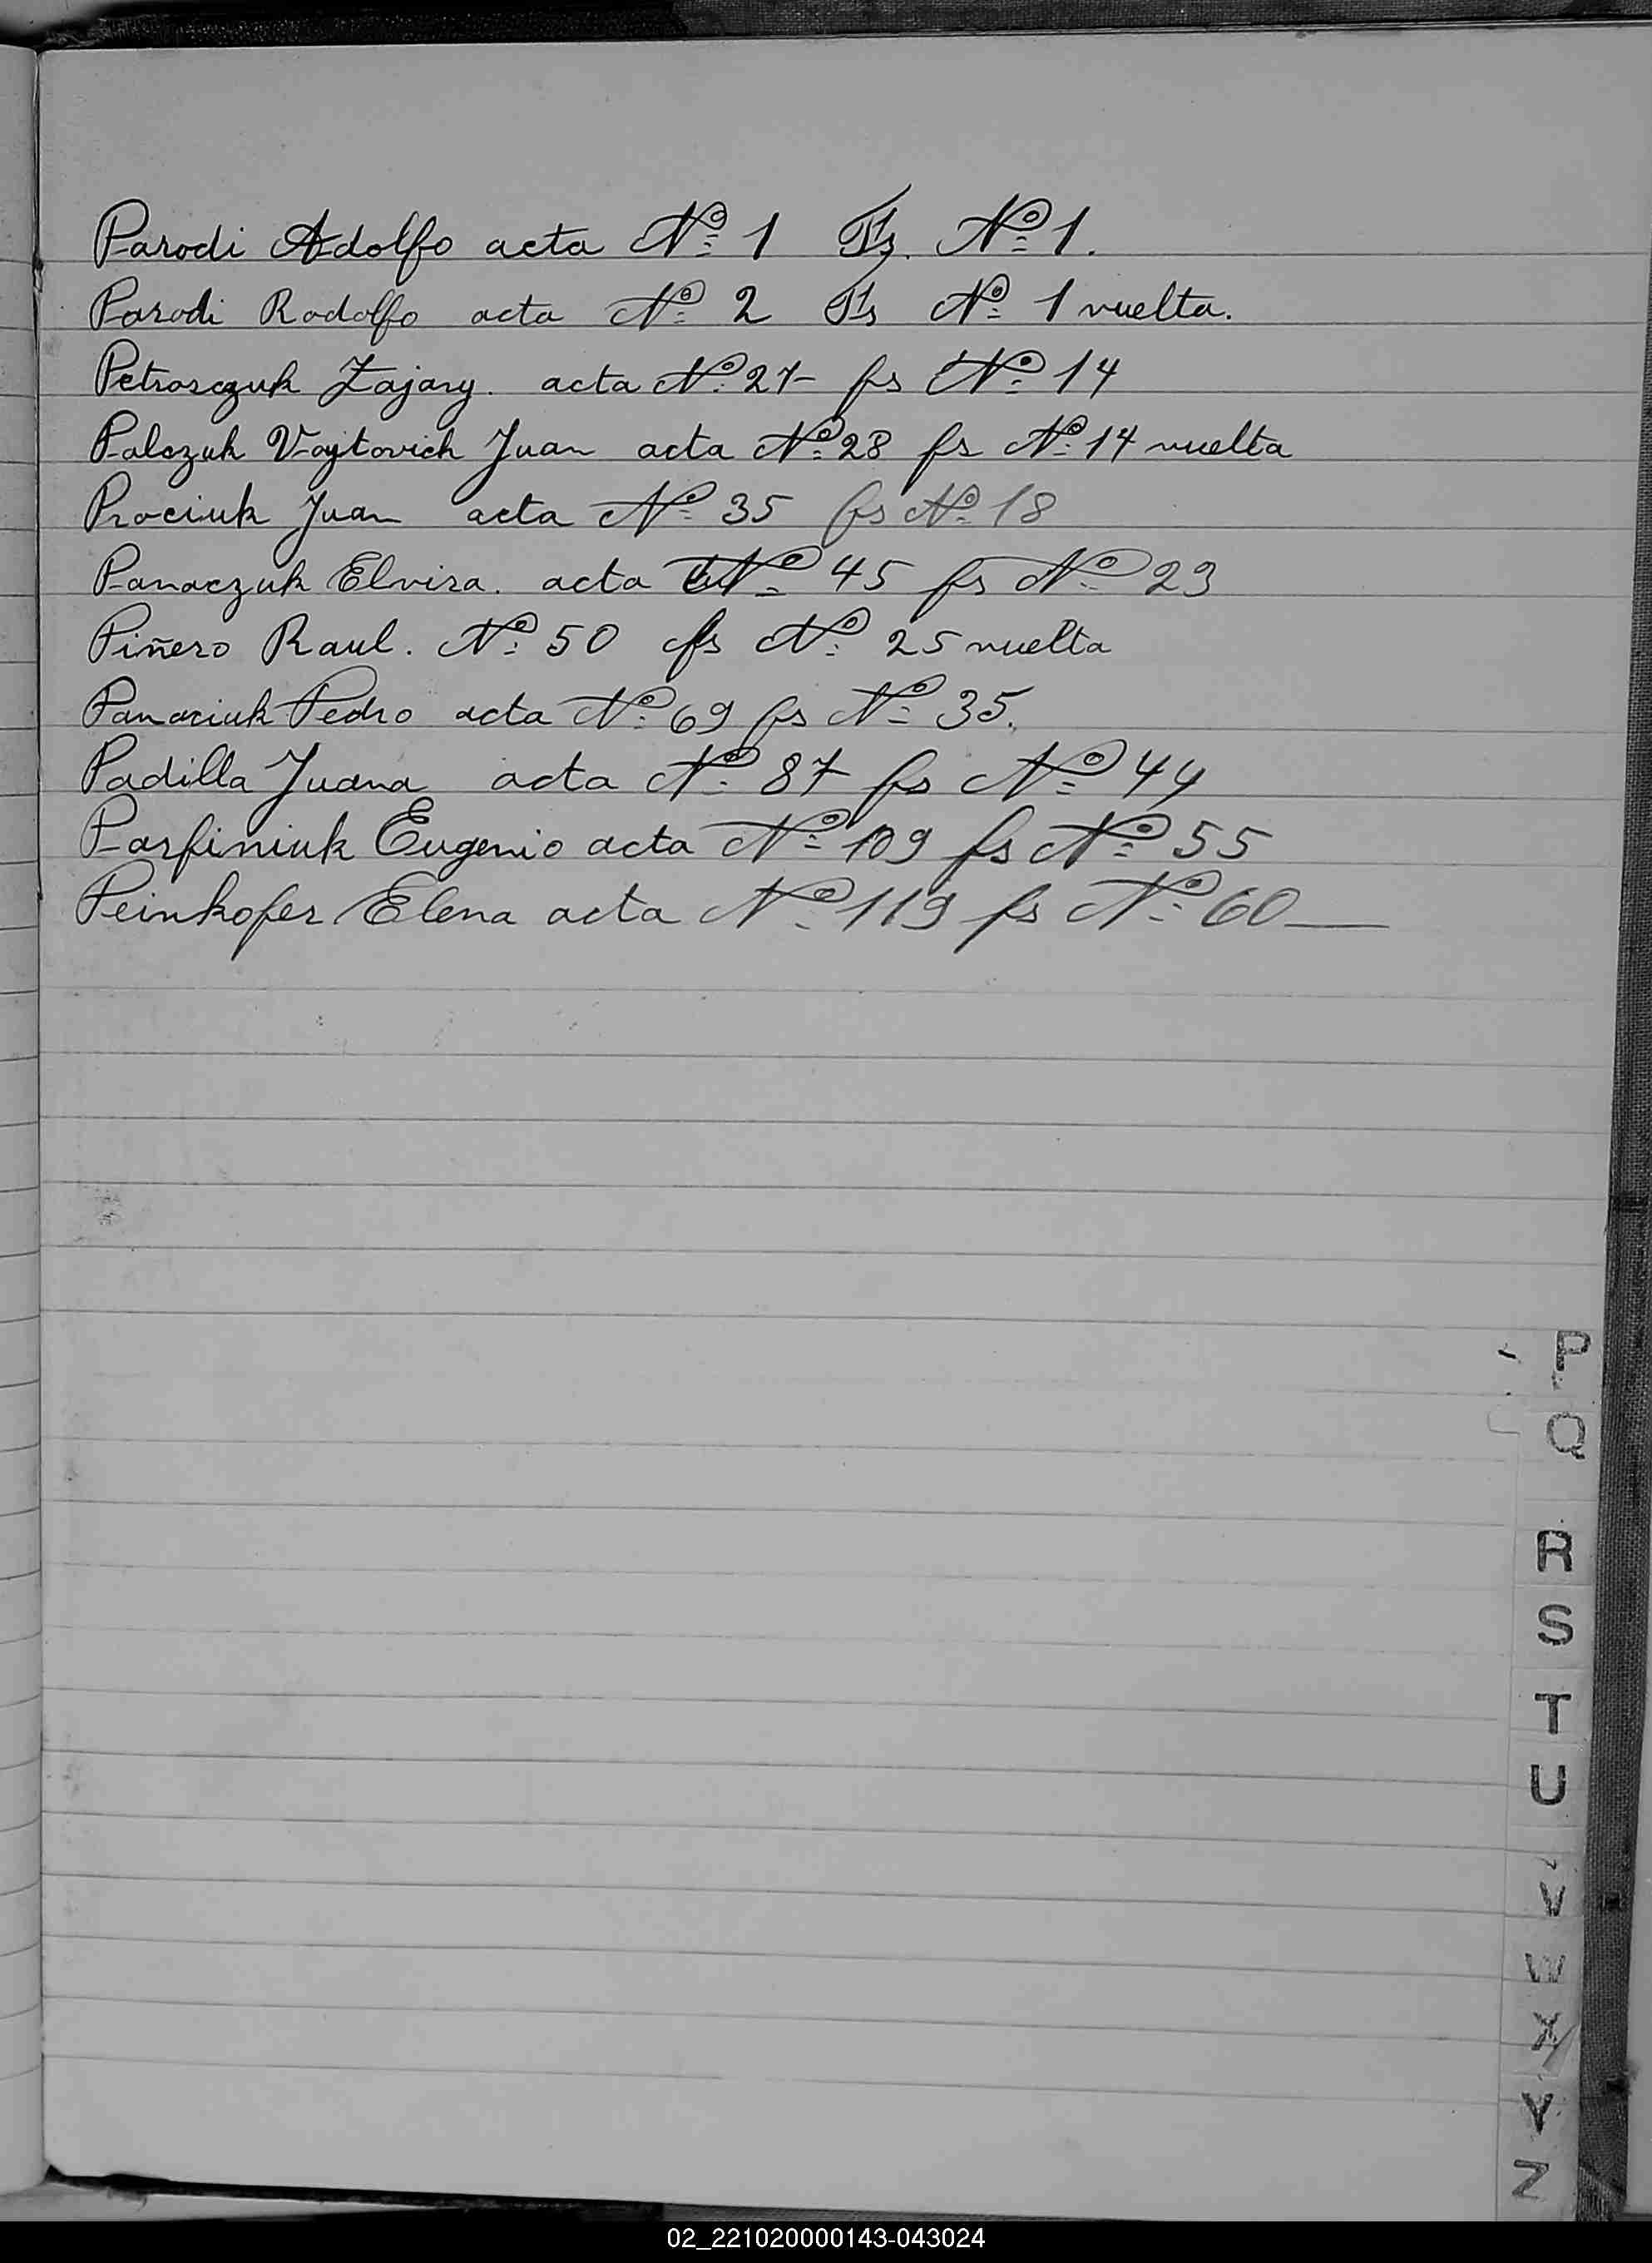 Parodi Adolfo acta Nº 1 Fs. Nº 1.
Parodi Rodolfo acta Nº 2 Fs Nº 1 vuelta.
Petrasczuk Zajary. acta Nº 27 fs Nº 14
Palczuk Vojtovich Juan acta Nº 28 fs Nº 14 vuelta
Prociuk Juan acta Nº 35 fs Nº 18
Panaczuk Elvira. acta Nº 45 fs Nº 23
Piñero Raul. Nº 50 fs Nº 25 vuelta
Panasiuk Pedro acta Nº 69 fs Nº 35.
Padilla Juana acta Nº 87 fs Nº 44
Parfiniuk Eugenio acta Nº 109 fs Nº 55
Peinkofer Elena acta Nº 119 fs Nº 60
P
Q
R
S
T
U
V
W
X
Y
Z
02_221020000143-043024